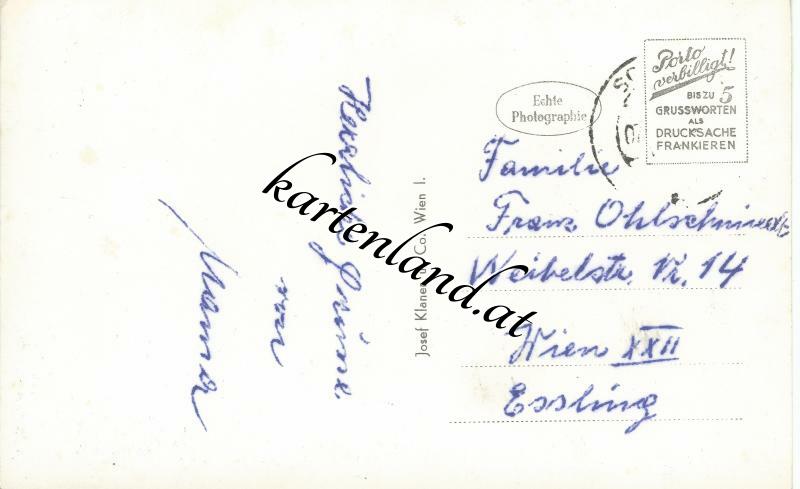 Herzliche Grüsse
von
Mama
Josef Klaner u. Co. Wien I.
kartenland.at
Echte
Photographie
Porto
verbilligt!
BIS ZU 5
GRUSSWORTEN
ALS
DRUCKSACHE
FRANKIEREN
Familie
Franz
Weibelstr. Nr. 14
Wien XXII
Essling